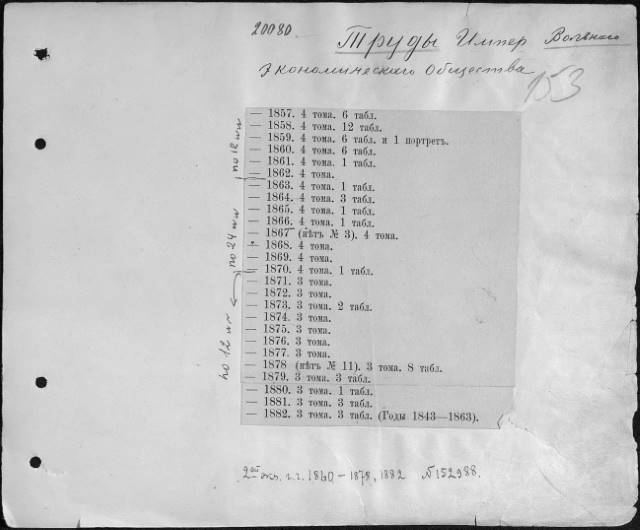 20080.
Труды Импер Вольнаго
Экономическаго Общества
153
— 1857. 4 тома. 6 табл.
— 1858. 4 тома. 12 табл.
— 1859. 4 тома. 6 табл. и 1 портретъ.
— 1860. 4 тома. 6 табл.
— 1861. 4 тома. 1 табл.
— 1862. 4 тома.
— 1863. 4 тома. 1 табл.
— 1864. 4 тома. 3 табл.
— 1865. 4 тома. 1 табл.
— 1866. 4 тома. 1 табл.
— 1867 (нѣтъ № 3). 4 тома.
1868. 4 тома.
— 1869. 4 тома.
— 1870. 4 тома. 1 табл.
— 1871. 3 тома.
— 1872. 3 тома.
— 1873. 3 тома. 2 табл.
— 1874. 3 тома.
— 1875. 3 тома.
— 1876. 3 тома.
— 1877. 3 тома.
— 1878 (нѣтъ № 11). 3 тома. 8 табл.
— 1879. 3 тома. 3 табл.
— 1880. 3 тома. 1 табл.
— 1881. 3 тома. 3 табл.
— 1882. 3 тома. 3 табл. (Годы 1843—1863).
по 12
по 24
по 12
2ой экз. г.г. 1860 – 1878, 1882 № 152988.